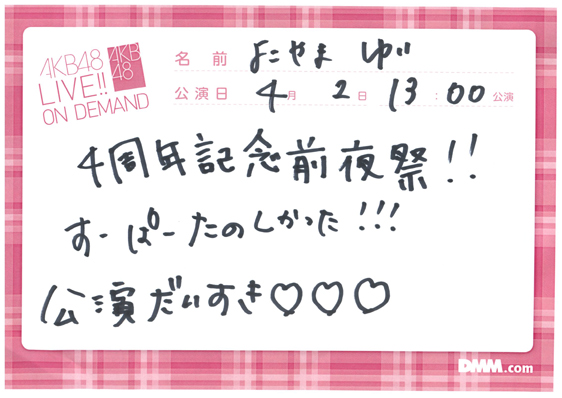 AKB48
LIVE!!
ON DEMAND
AKB
48
名前 よこやま ゆい
公演日 4月 2日 13:00 公演
4周年記念前夜祭!!
すーぱーたのしかった!!!
公演だいすき♡♡♡
DMM.com